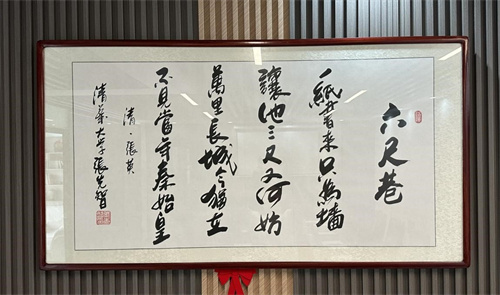 六尺巷
一紙書来只為墙
讓他三尺又何妨
萬里長城今猶在
不見當年秦始皇
清·張英
清華大学張先智